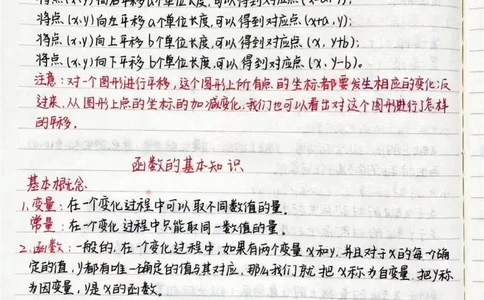 将点(x,y)向左平移a个单位长度,可以得到对应点(x+a,y);
将点(x,y)向上平移b个单位长度,可以得到对应点(x,y+b);
将点(x,y)向下平移b个单位长度,可以得到对应点(x,y-b)。
注意:对一个图形进行平移,这个图形上所有点的坐标都要发生相应的变化;反
过来,从图形上点的坐标的加减变化,我们也可以看出对这个图形进行了怎样
的平移.
函数的基本知识
基本概念
1.变量:在一个变化过程中可以取不同数值的量。
常量:在一个变化过程中只能取同一数值的量。
2.函数:一般的,在一个变化过程中,如果有两个变量x和y,并且对于x的每一个确
定的值,y都有唯一确定的值与其对应,那么我们就把x称为自变量,把y称
为因变量,y是x的函数。